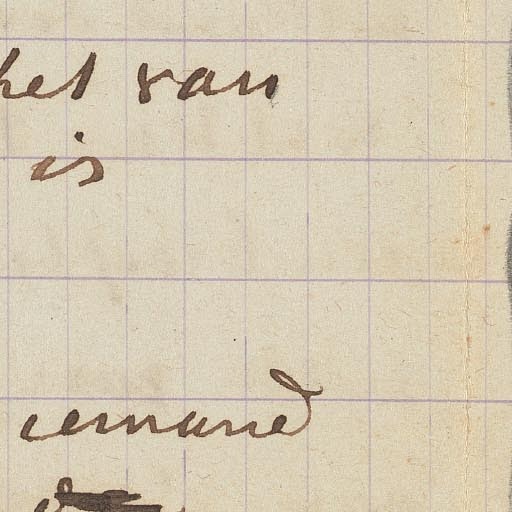 het van
is
iemand